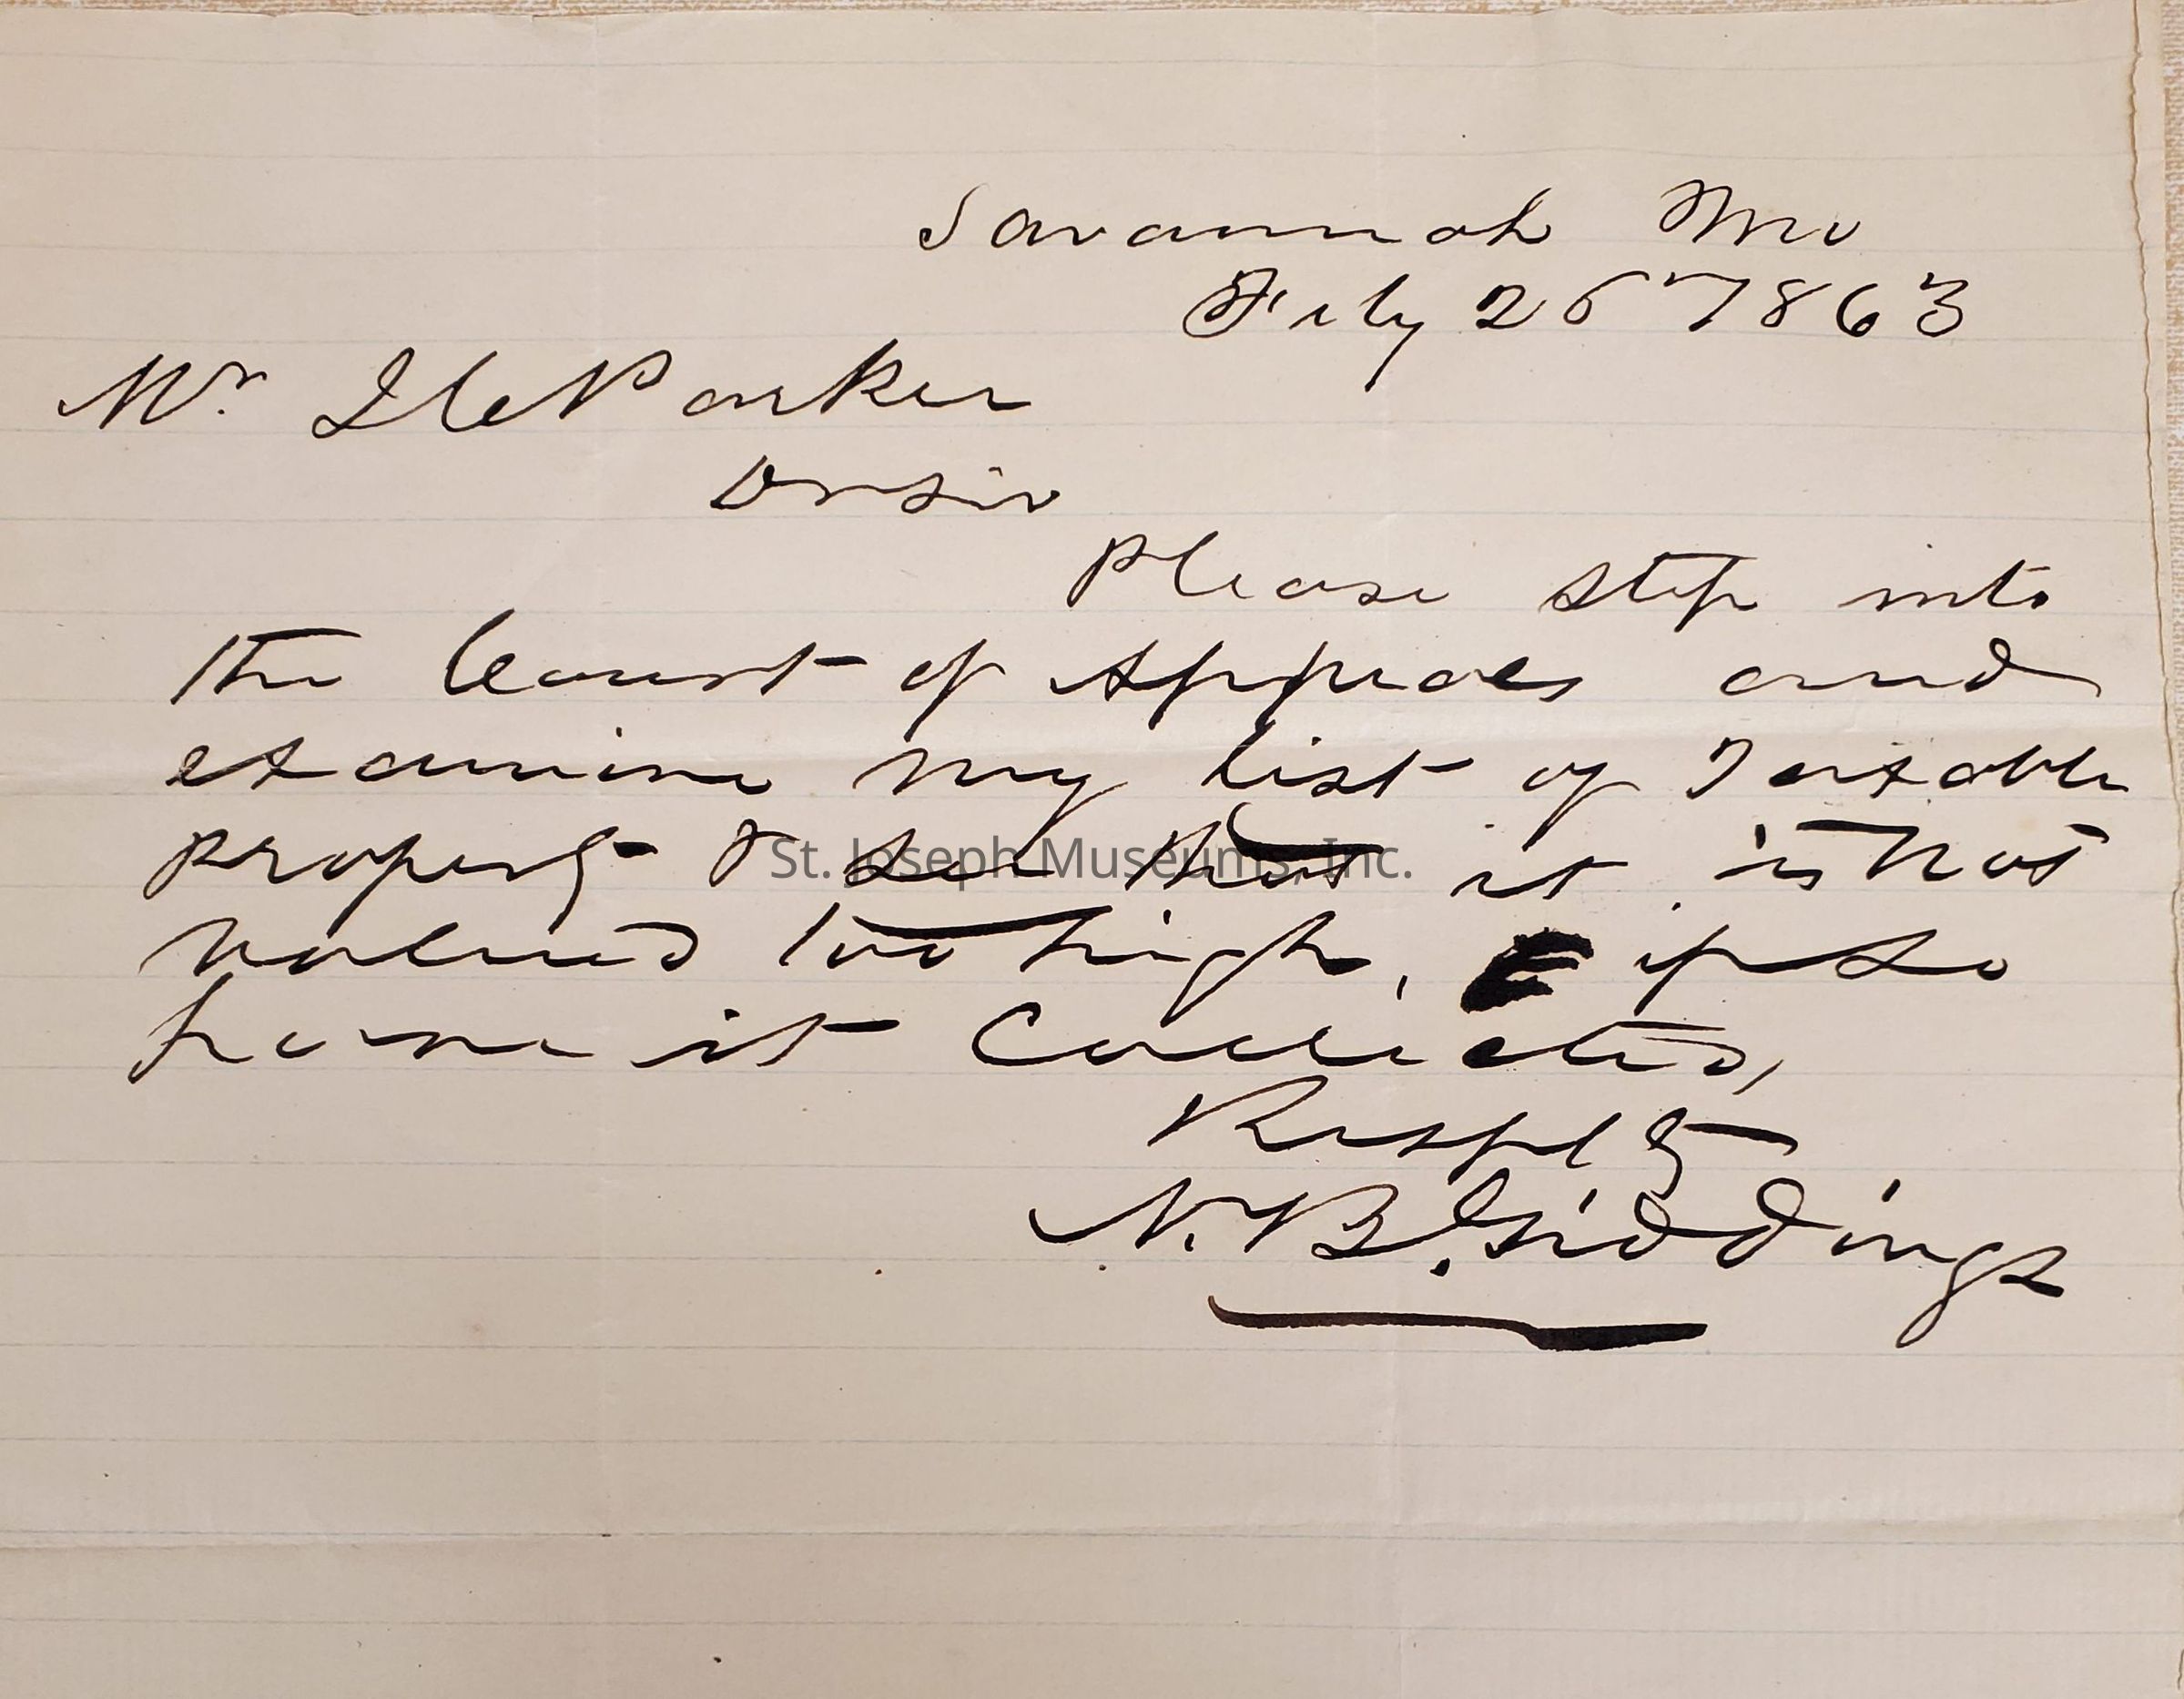 Savannah Mo
Feby 26 1863
Mr I C Parker
Dr Sir
Please step into
the Court of Appeals and
examine my list of Taxable
property & see that it is not
valued too high, if so
have it Corrected,
Resply
N. B. Giddings
St. Joseph Museums, Inc.